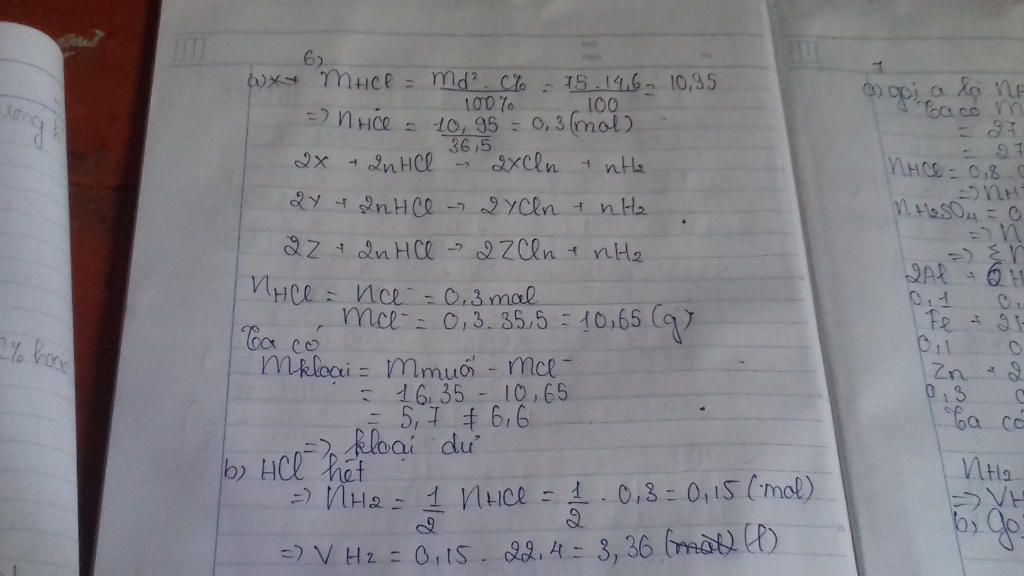 6)
a) mHCl = mdd . C% / 100% = 75 . 14,6 / 100 = 10,95
=> nHCl = 10,95 / 36,5 = 0,3 (mol)
2X + 2nHCl -> 2XCln + nH2
2Y + 2nHCl -> 2YCln + nH2
2Z + 2nHCl -> 2ZCln + nH2
nHCl = nCl⁻ = 0,3 mol
mCl⁻ = 0,3 . 35,5 = 10,65 (g)
Ta có
mkloại = mmuối - mCl⁻
= 16,35 - 10,65
= 5,7 ≠ 6,6
=> kloại dư
b) HCl hết
=> nH2 = 1/2 nHCl = 1/2 . 0,3 = 0,15 (mol)
=> VH2 = 0,15 . 22,4 = 3,36 (l)
7
a) gọi a là nH
Ta có m
= 27
= 27
nHCl = 0,8 .
=> nH
nH2SO4 = 0
=> n
=> Σn
2Al + 6H
0,1 0,
Fe + 2H
0,1 0
Zn + 2
0,3
Ta có
nH2
=> VH
b) Gọ